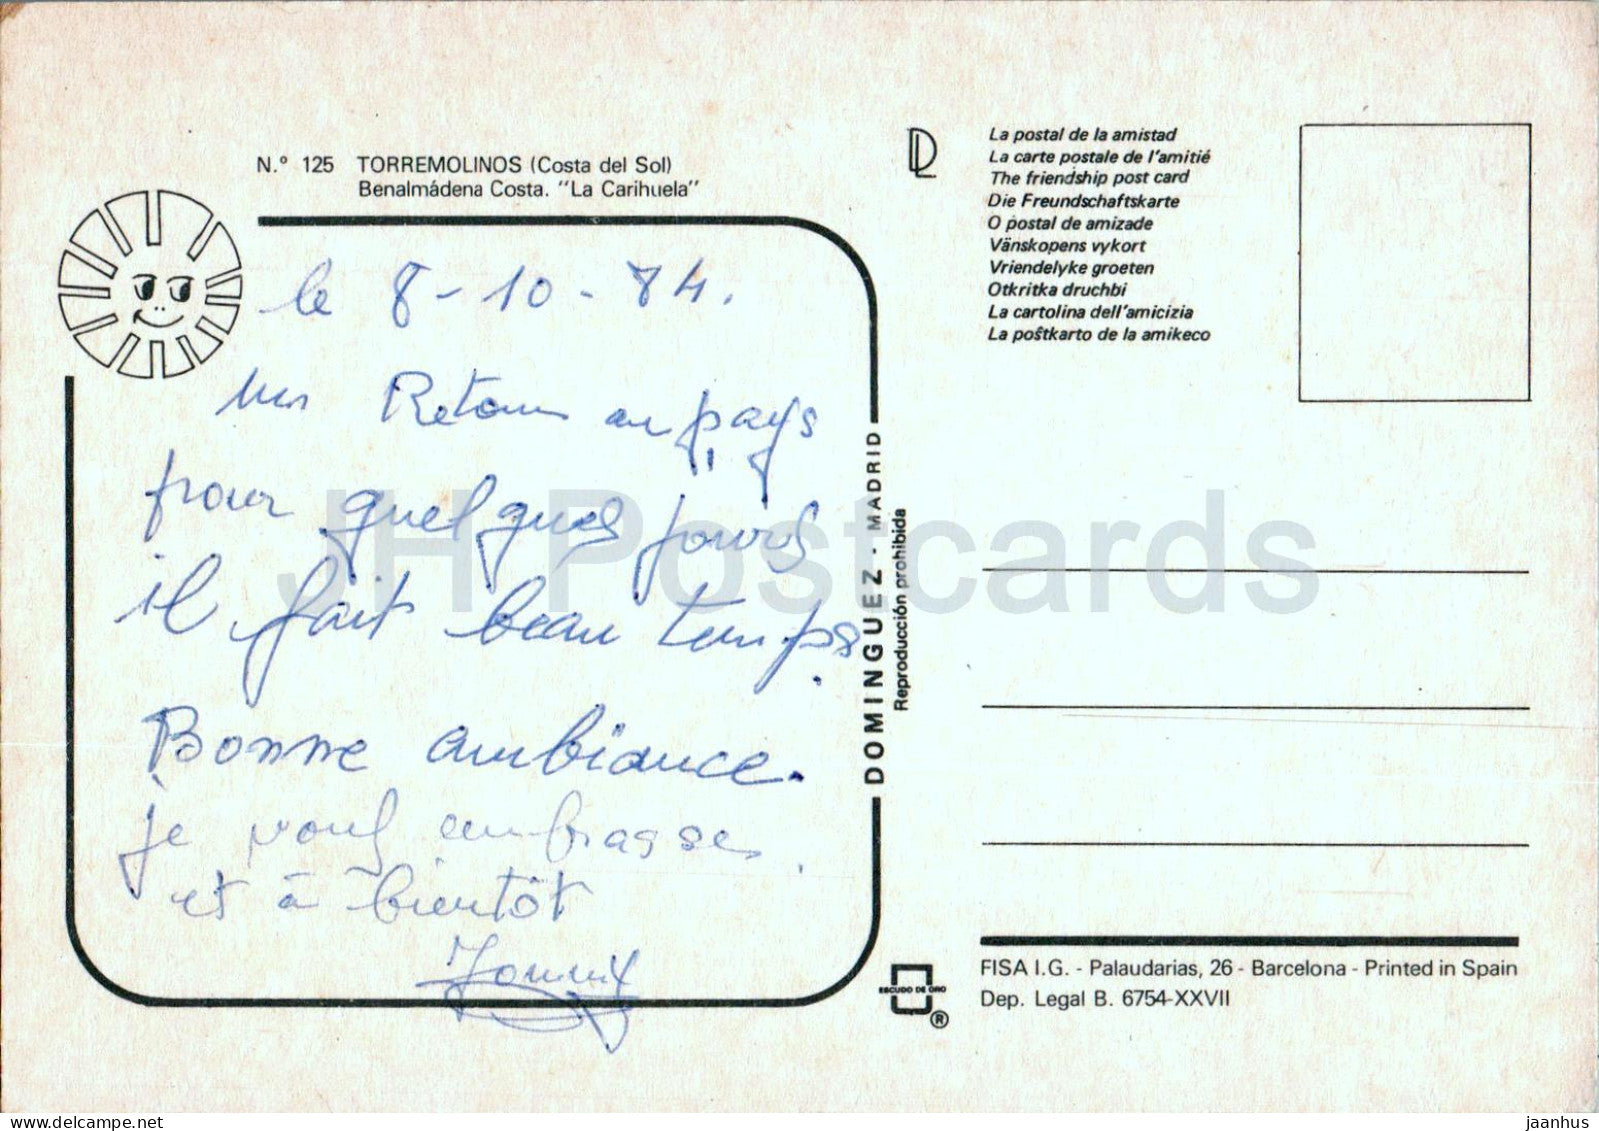 N.º 125 TORREMOLINOS (Costa del Sol)
Benalmádena Costa. "La Carihuela"
le 8-10-84.
Retour au pays
pour quelques jours
il fait beau temps.
Bonne ambiance.
je vous embrasse.
et à bientôt
DOMINGUEZ - MADRID
Reproducción prohibida
DL
La postal de la amistad
La carte postale de l'amitié
The friendship post card
Die Freundschaftskarte
O postal de amizade
Vänskopens vykort
Vriendelyke groeten
Otkritka druchbi
La cartolina dell'amicizia
La poŝtkarto de la amikeco
ESCUDO DE ORO
®
FISA I.G. - Palaudarias, 26 - Barcelona - Printed in Spain
Dep. Legal B. 6754-XXVII
JH Postcards
www.delcampe.net
jaanhus